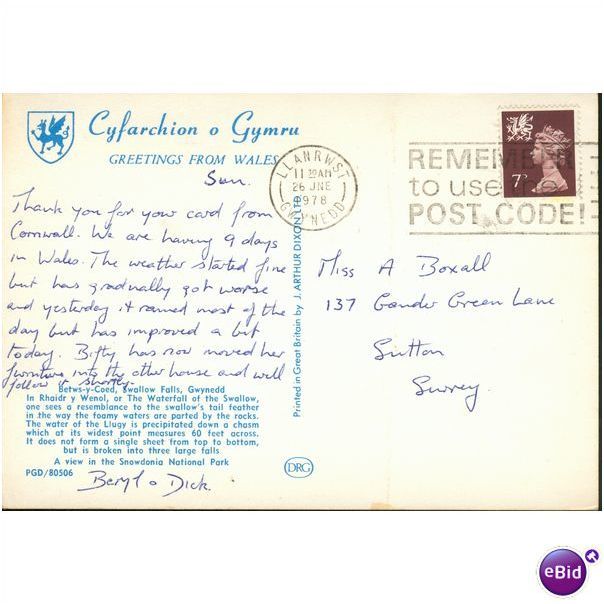 Cyfarchion o Gymru
GREETINGS FROM WALES
Sun.
Thank you for your card from
Cornwall. We are having 9 days
in Wales. The weather started fine
but has gradually got worse
and yesterday it rained most of the
day but has improved a bit
today. has now moved her
furniture into the other house and will
follow it shortly.
Betws-y-Coed, Swallow Falls, Gwynedd
In Rhaidr y Wenol, or The Waterfall of the Swallow,
one sees a resemblance to the swallow's tail feather
in the way the foamy waters are parted by the rocks.
The water of the Llugy is precipitated down a chasm
which at its widest point measures 60 feet across.
It does not form a single sheet from top to bottom,
but is broken into three large falls
A view in the Snowdonia National Park
PGD/80506
Beryl & Dick.
Printed in Great Britain by J. ARTHUR DIXON LTD
DRG
LLANRWST
11 30 AM
26 JNE
1978
GWYNEDD
REMEMBER
to use the
POST CODE!
7P
Miss A Boxall
137 Gander Green Lane
Sutton
Surrey.
eBid